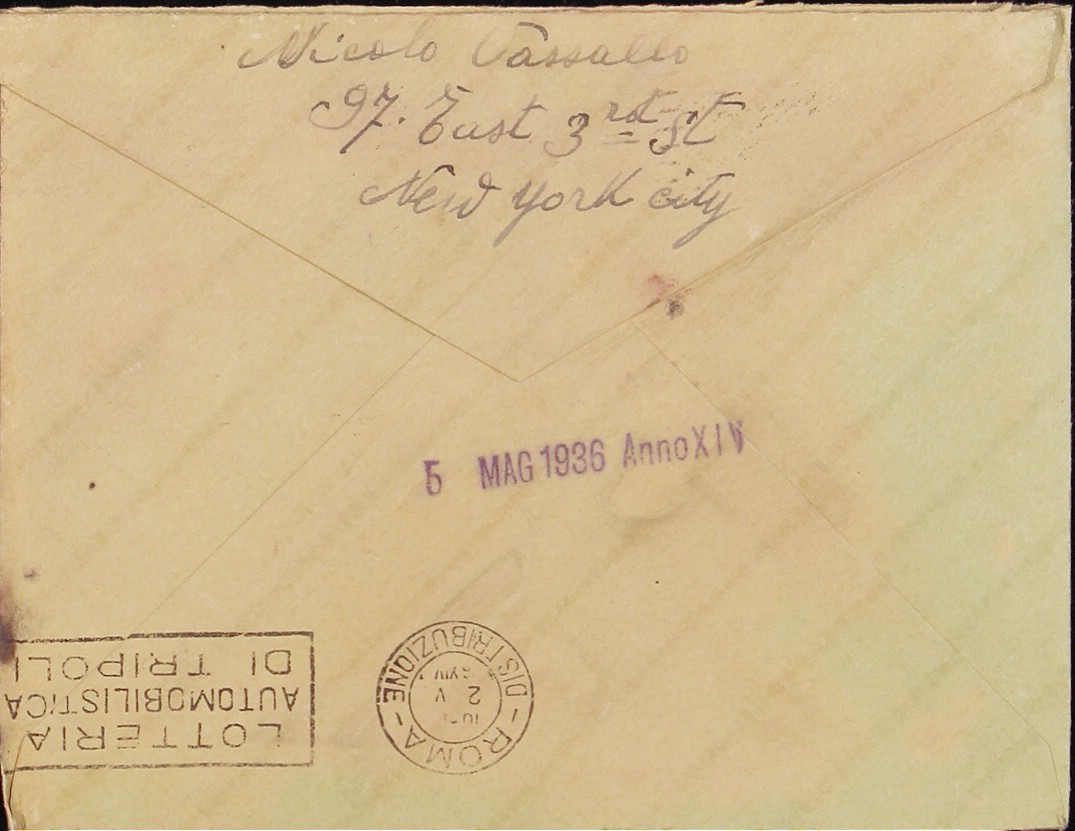 Nicolo Vassallo
97. East 3rd St
New York city
5 MAG 1936 Anno XIV
LOTTERIA
AUTOMOBILISTICA
DI TRIPOLI
ROMA - DISTRIBUZIONE -
2 V